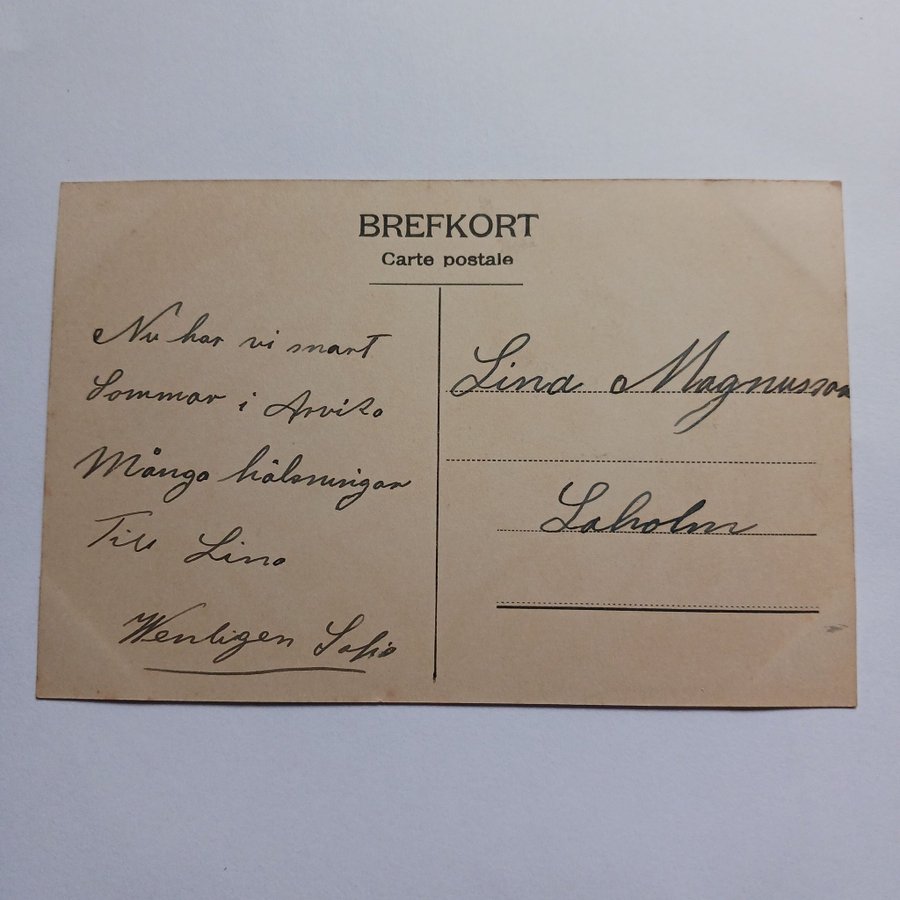 BREFKORT
Carte postale
Nu har vi snart
Sommar i Arvika
Många hälsningar
Till Lina
Wenligen Sofia
Lina Magnusson
Laholm